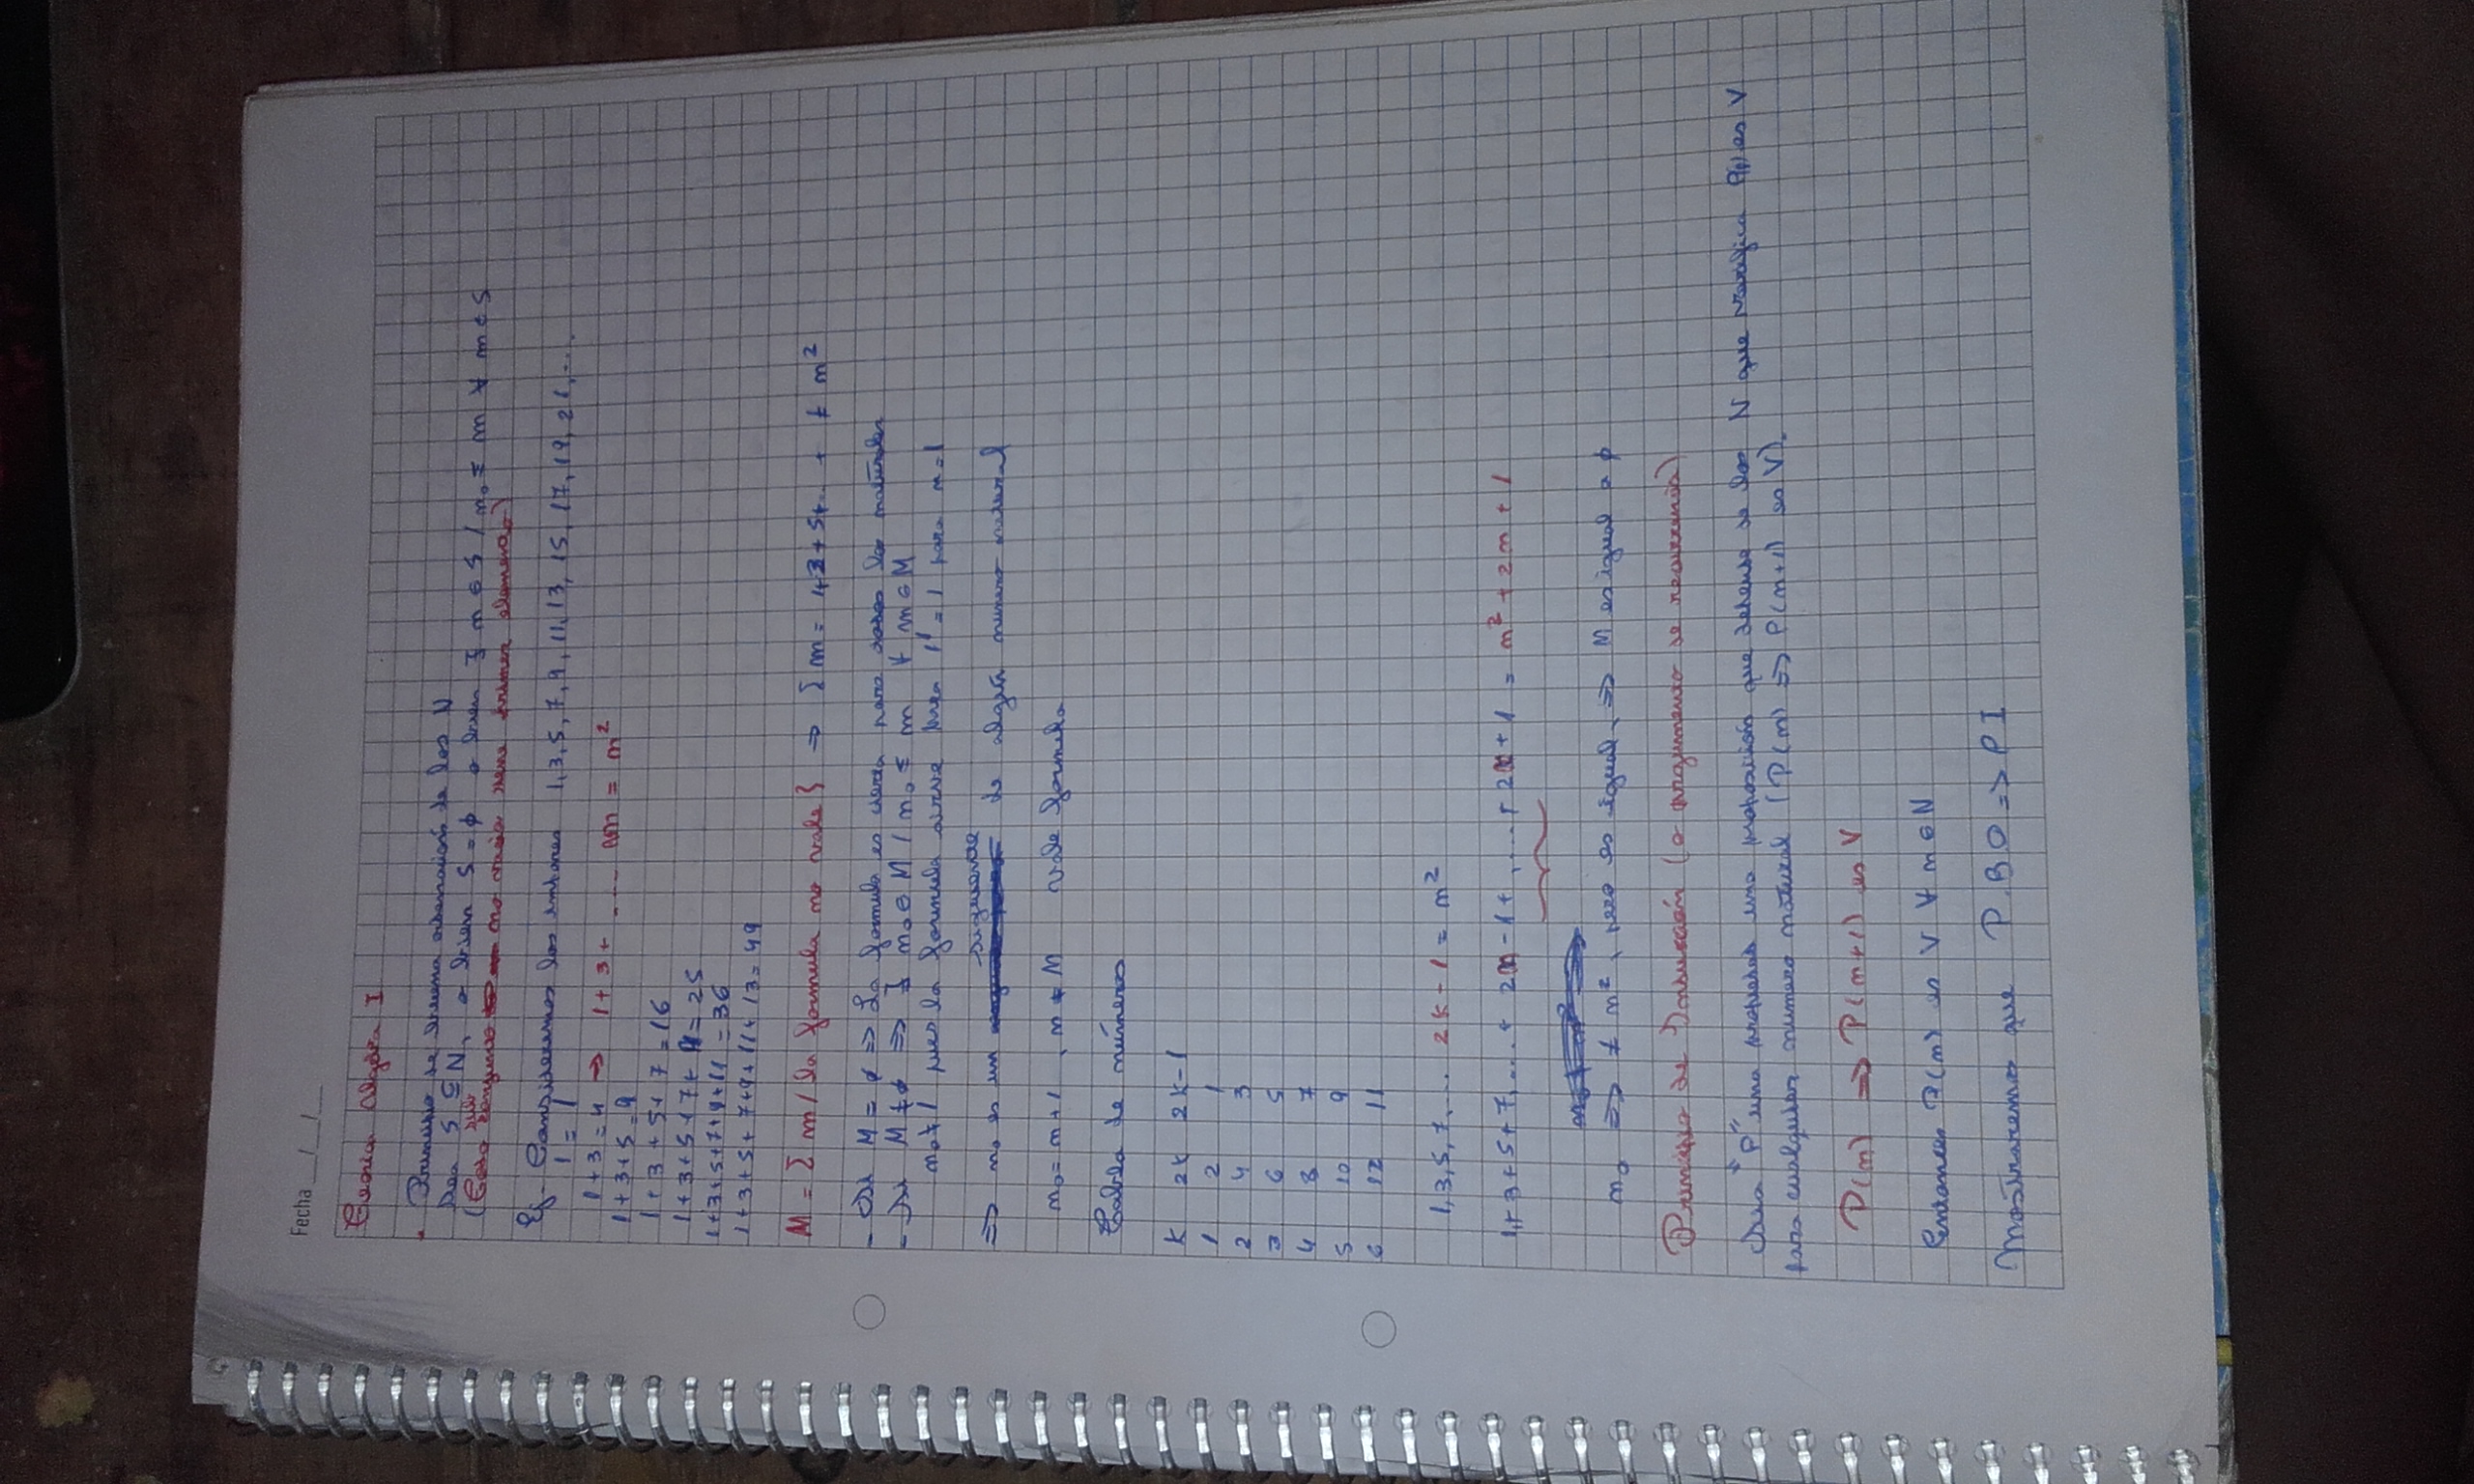 Fecha __/__/__
Teoria Algebra I
• Principio de buena ordenación de los N
Sea S ⊆ N, o bien S = ϕ o bien ∃ n ∈ S / n₀ ≤ m ∀ m ∈ S
(Todo sub conjunto no vacio tiene primer elemento)
Ej. Consideremos los 1, 3, 5, 7, 9, 11, 13, 15, 17, 19, 21, ....
1 = 1
1 + 3 = 4 → 1 + 3 + .... = n²
1 + 3 + 5 = 9
1 + 3 + 5 + 7 = 16
1 + 3 + 5 + 7 + 9 = 25
1 + 3 + 5 + 7 + 9 + 11 = 36
1 + 3 + 5 + 7 + 9 + 11 + 13 = 49
M = { n / la formula no vale } ⇒ + 5 + .. + ≠ n²
- Si M = ϕ ⇒ La formula es cierta para todos los naturales
- Si M ≠ ϕ ⇒ ∃ n₀ ∈ M / n₀ ≤ m ∀ m ∈ M
n₀ ≠ 1 pues la formula sirve para = 1 para n = 1
siguiente
⇒ n₀ es un de algún numero natural
n₀ = n + 1 , n ∉ M vale formula
Tabla de números
K 2K 2K-1
1 2 1
2 4 3
3 6 5
4 8 7
5 10 9
6 12 11
1, 3, 5, 7, .... 2K - 1 = n²
1 + 3 + 5 + 7, .... + 2n - 1 + , .... + 2n + 1 = n² + 2n + 1
n₀ ⇒ ≠ n², pero es igual, ⇒ M es igual a ϕ
Principio de Inducción (o argumento de recurrencia)
Sea "P" una una proposición que depende de los N que verifica P(1) es V
para cualquier numero natural (P(n) ⇒ P(n+1) es V).
P(n) ⇒ P(n+1) es V
Entonces P(n) es V ∀ n ∈ N
Mostraremos que P.B.O ⇒ P I